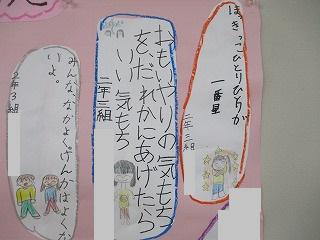 ほっきっこひとりひとりが
一番星
二年三組
おもいやりの気もち
を、だれかにあげたら
いい気もち
二年三組
みんな、なかよく、けんかはよくな
いよ。
2年3組